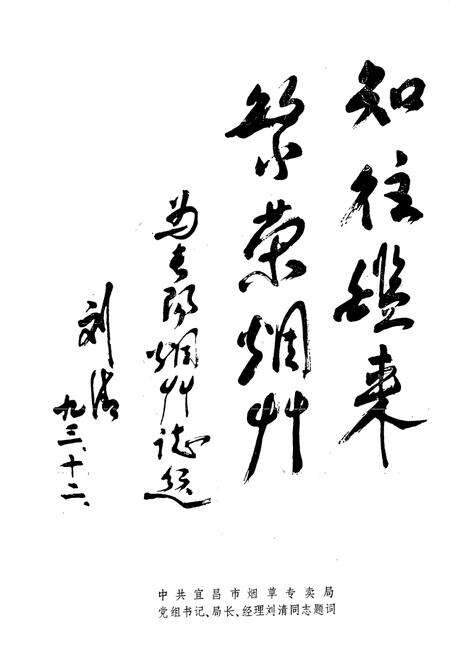 知往鑑来
繁荣烟艸
为长阳烟艸志题
刘清
九三.十二.
中共宜昌市烟草专卖局
党组书记、局长、经理刘清同志题词